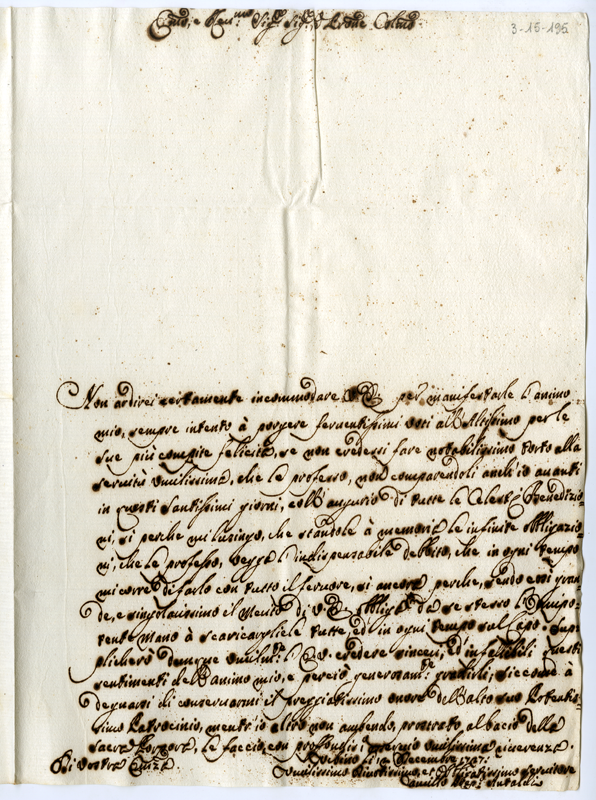 3-15-195
Em̃o, e Rev.mo Sig.r Sig.r Prone Colmo
Non ardirei certamente incommodare V.E. per manifestarle l'animo
mio, sempre intento à porgere ferventissimi voti all'Altissimo per le
sue più compite felicità, se non credessi fare notabilissimo torto alla
servitù umilissima, che le professo, non comparendoli anch'io avanti
in questi santissimi giorni, coll'augurio di tutte le Celesti Benedizio-
ni, sì perche mi lusingo, che standole à memoria le infinite obbligazio-
ni, che le professo, vegga l'indispensabile debbito, che in ogni tempo
mi corre di farlo con tutto il fervore, sì ancora perche, sendo così gran-
de, e singolarissimo il Merito di V.E. obbliga da se stesso l'Onnipo-
tente Mano à scaricargliele tutte, ed in ogni tempo sul Capo. Sup-
plicherò dunque umilm.e l'E.V. credere sinceri, ed infallibili questi
sentimenti dell'animo mio, e perciò generosam.e gradirli, siccome à
degnarsi di conservarmi il preggiatissimo onore dell'alto suo Potentis-
simo Patrocinio, mentr'io altro non ambendo, prostrato al bacio della
Sacra Porpora, le faccio, con profondissimo ossequio umilissima riverenza.
Di Vostra Em̃za
Urbino li Decembre 1727.
Umilissimo Divotissimo, et Obligatissimo Servitore
Camillo Antaldi